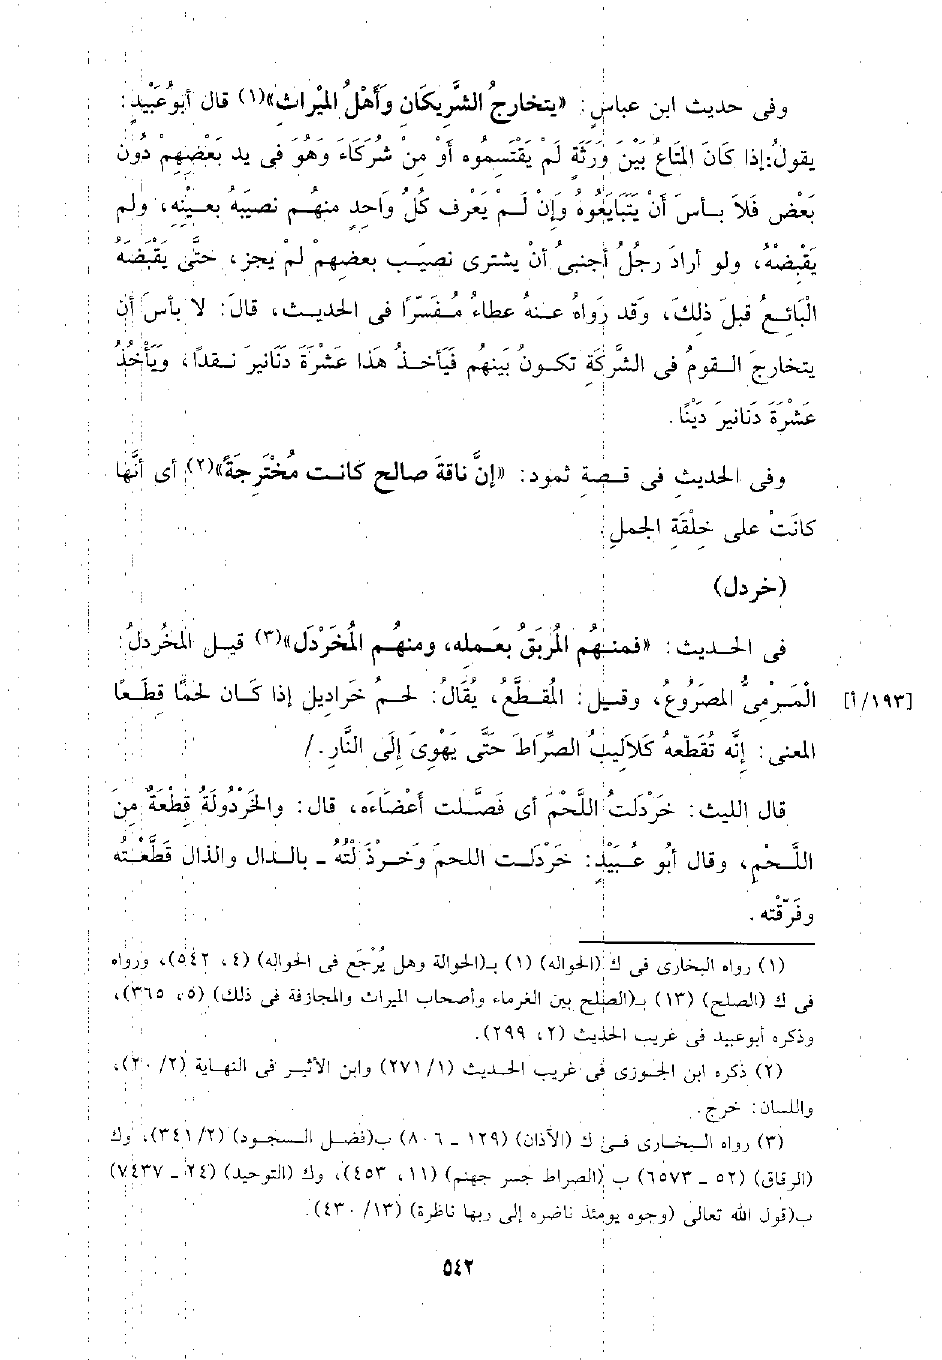 وفى حديث ابن عباسٍ: «يتخارجُ الشَّرِيكَانِ وأَهْلُ الميْراثِ»(١) قال أبوعُبَيْدٍ:
يقولُ: إذا كَانَ المتَاعُ بَيْنَ وَرَثَةٍ لَمْ يَقْتَسِمُوه أوْ مِنْ شُرَكَاءَ وَهُوَ فى يد بَعْضِهِمْ دُونَ
بَعْضٍ فَلاَ بأسَ أنْ يَتَبَايَعُوهُ وَإنْ لَمْ يَعْرِف كُلُّ وَاحِدٍ منهُم نصِيبَهُ بعينِه، ولم
يَقْبِضْهُ، ولو أرادَ رجلٌ أجنبىٌ أنْ يشترى نصيَب بعضهِمْ لمْ يجز، حتَّى يَقْبَضَهُ
الْبَائعُ قبلَ ذلكَ، وَقد رَواهُ عنهُ عطاءٌ مُفَسَّرًا فى الحديثِ، قالَ: لا بأسَ أن
يتخارجَ القومُ فى الشَّرِكَةِ تكونُ بَينهُم فَيَأخذُ هَذا عَشْرَةَ دَنَانيرَ نقدًا، ويَأْخُذُ
عَشْرَةَ دَنانيرَ دَيْنًا.
وفى الحديثِ فى قصةِ ثمود: «إنَّ ناقةَ صالحٍ كانت مُخْتَرجَةً»(٢) أى أنَّها
كانَتْ على خِلْقَةِ الجملِ.
(خردل)
فى الحديث: «فمنهُم المُربَقُ بعَمله، ومنهُم المُخَرْدَل»(٣) قيل المُخردلُ:
الْمَرْمىُّ المصَرُوعُ، وقيل: المُقطَّعُ، يُقَالُ: لحم خَراديل إذا كَان لحمًا قطَعًا [١٩٣/أ]
المعنى: إنَّه تُقَطِّعهُ كَلاَليبُ الصِّرَاطَ حَتَّى يَهْوِىَ إلَى النَّارِ./
قال الليث: خَرْدَلتُ اللَّحْمَ أى فَصَّلت أعْضَاءَه، قال: والخَرْدُولَةُ قِطْعَةٌ مِنَ
اللَّحْمِ، وقال أبُو عُبَيْدٍ: خَرْدَلت اللحمَ وَخرْذَلْتُهُ ـ بالدال والذال قَطَّعْتُه
وفَرّقْته.
(١) رواه البخارى فى ك (الحواله) (١) بـ(الحوالة وهل يُرْجَع فى الحواله) (٤، ٥٤٢)، ورواه
فى ك (الصلح) (١٣) بـ(الصلح بين الغرماء وأصحاب الميراث والمجازفة فى ذلك) (٥، ٣٦٥)،
وذكره أبوعبيد فى غريب الحديث (٢، ٢٩٩).
(٢) ذكره ابن الجوزى فى غريب الحديث (٢٧١/١) وابن الأثير فى النهاية (٢٠/٢)،
واللسان: خرج.
(٣) رواه البخارى فى ك (الأذان) (١٢٩ ـ ٨٠٦) ب(فضل السجود) (٣٤١/٢)، وك
(الرقاق) (٥٢ ـ ٦٥٧٣) ب (الصراط جسر جهنم) (١١، ٤٥٣)، وك (التوحيد) (٢٤ ـ ٧٤٣٧)
ب(قول الله تعالى (وجوه يومئذ ناضره إلى ربها ناظرة) (٤٣٠/١٣).
٥٤٢